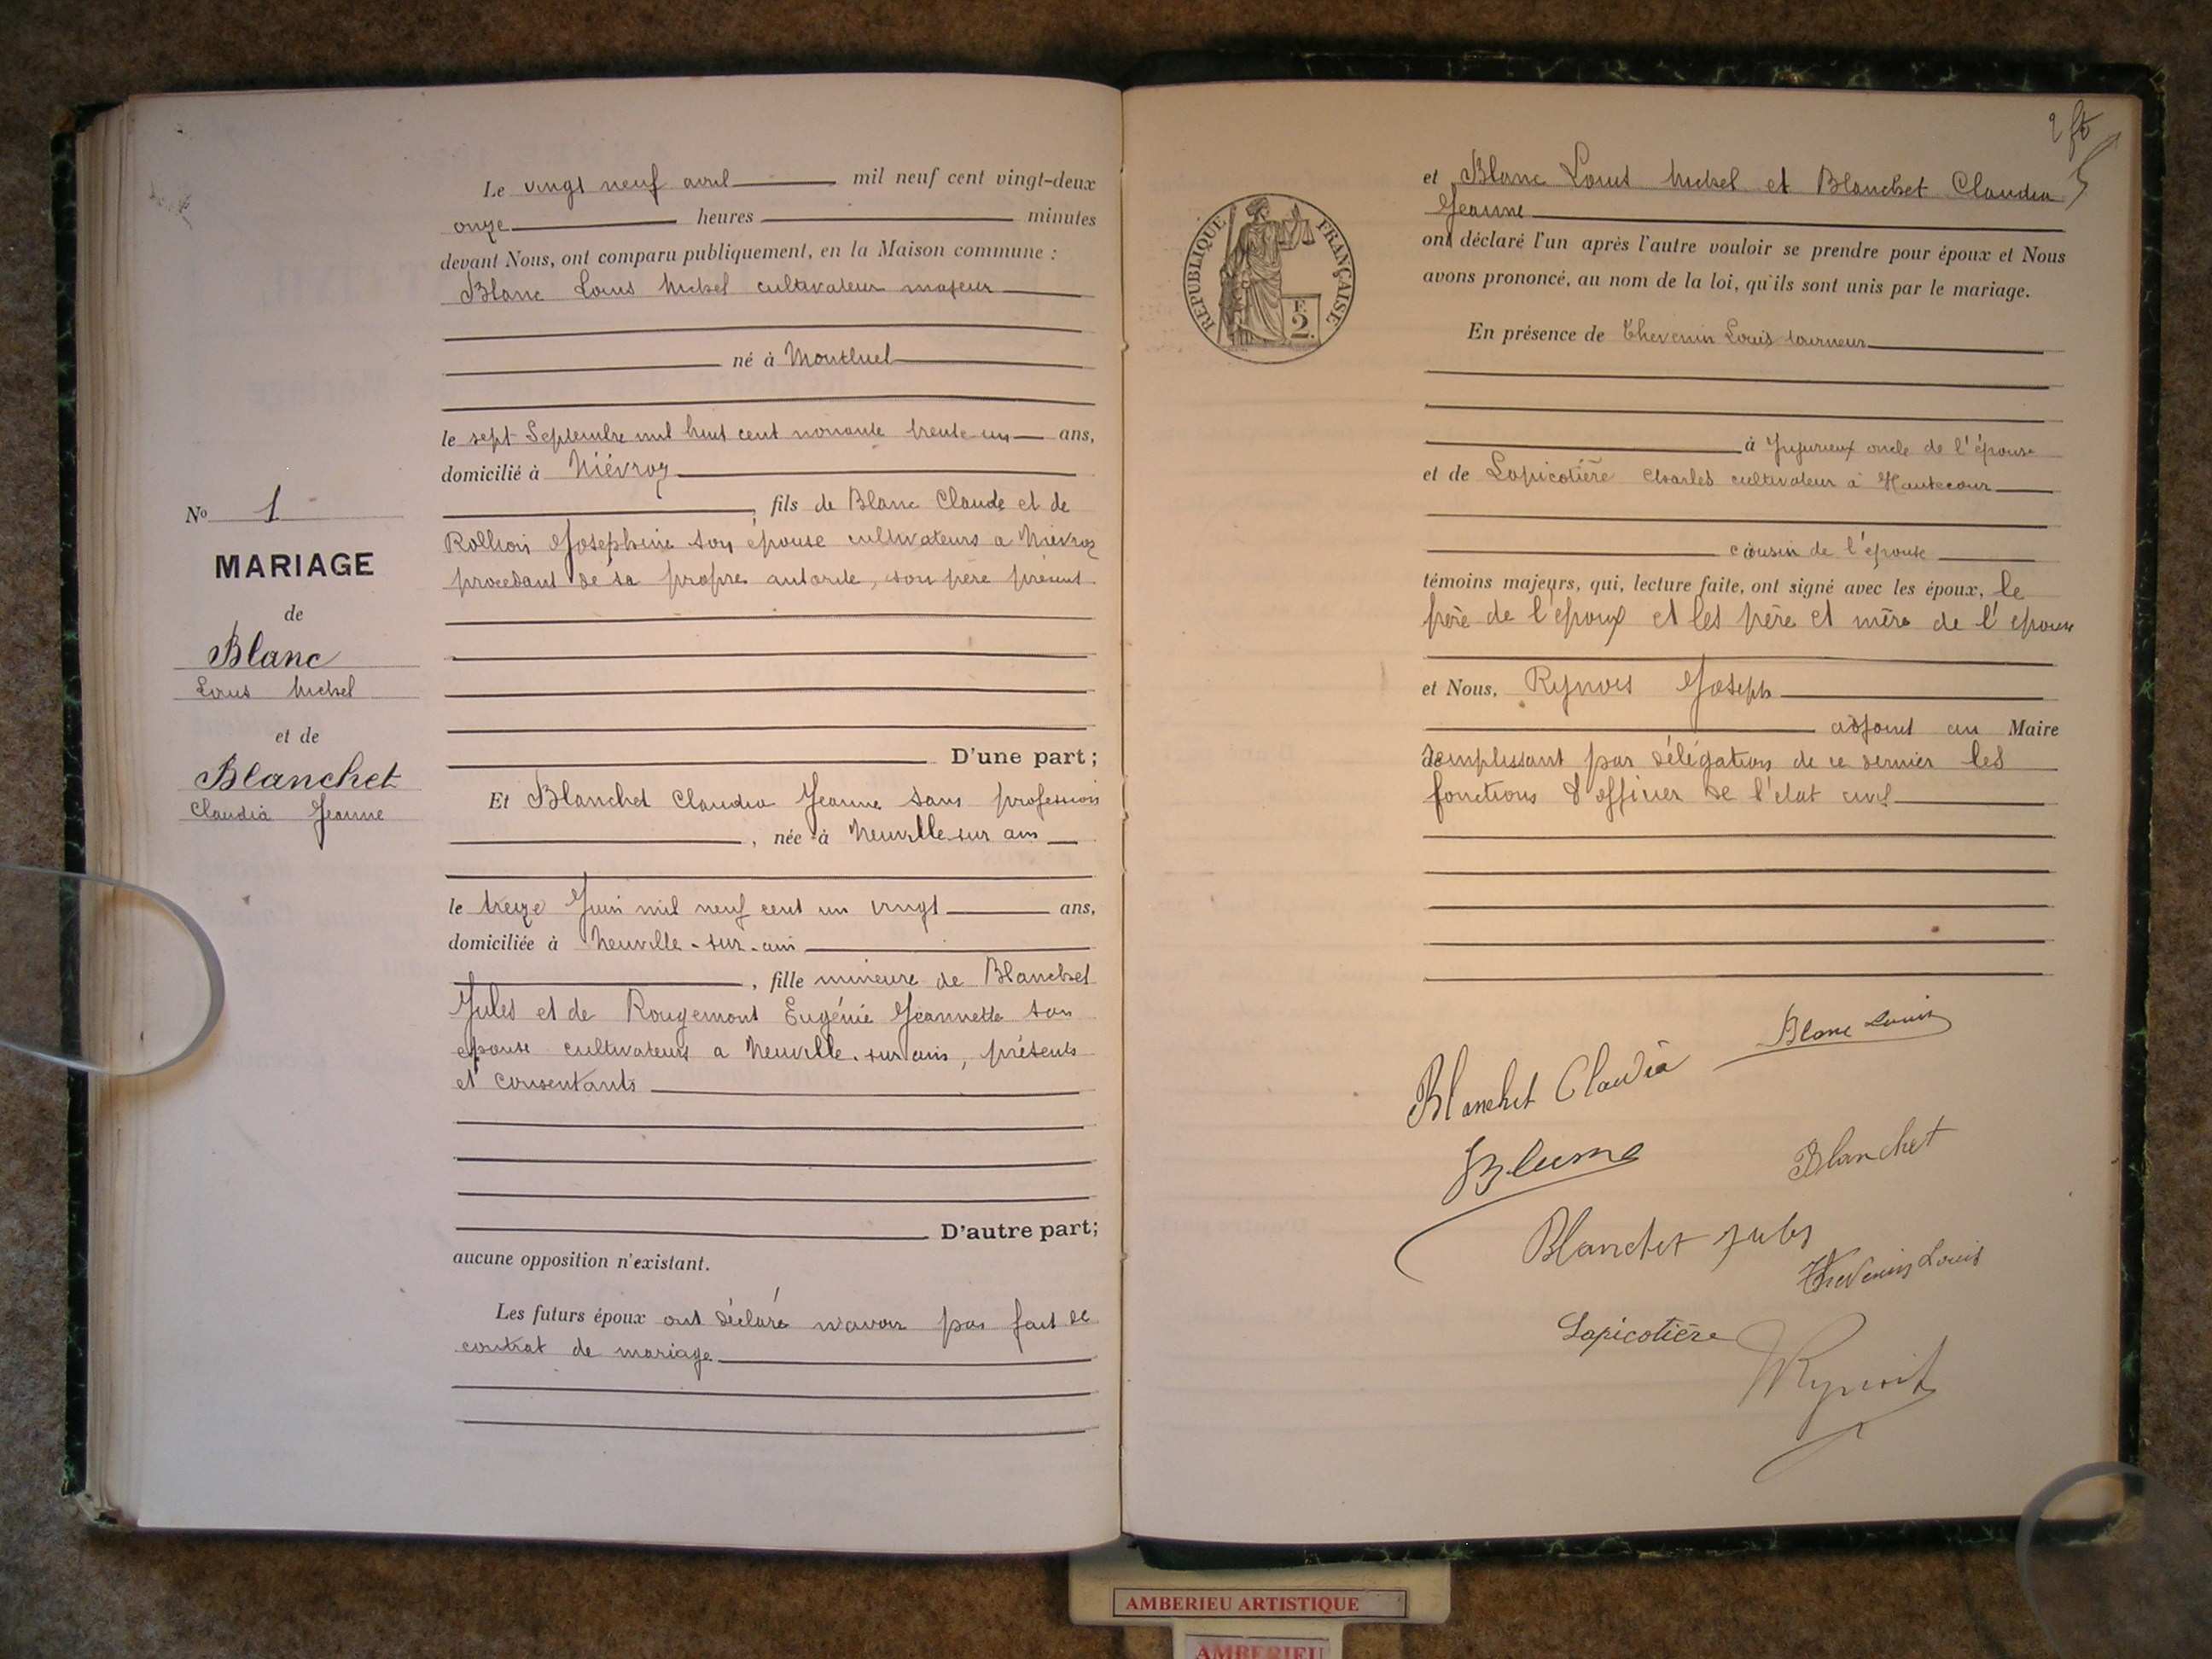 Le vingt neuf avril mil neuf cent vingt-deux
onze heures minutes
devant Nous, ont comparu publiquement, en la Maison commune :
Blanc Louis Michel cultivateur majeur
né à Montluel
le sept Septembre mil huit cent nonante trente un ans,
domicilié à Niévroz
, fils de Blanc Claude et de
Josephine son épouse cultivateurs a Niévroz
procedant de sa propre autorité, son père présent
D'une part ;
Nº 1
MARIAGE
de
Blanc
Louis Michel
et de
Blanchet
Claudia Jeanne
Et Blanchet Claudia Jeanne sans profession
, née à Neuville sur ain
le treize Juin mil neuf cent un vingt ans,
domiciliée à Neuville-sur-ain
, fille mineure de Blanchet
Jules et de Rougemont Eugénie Jeannette son
épouse cultivateurs a Neuville-sur ain, présents
et consentants
D'autre part;
aucune opposition n'existant.
Les futurs époux ont déclaré n'avoir pas fait de
contrat de mariage
RÉPUBLIQUE FRANÇAISE
F.
2.
et Blanc Louis Michel et Blanchet Claudia
Jeanne
ont déclaré l'un après l'autre vouloir se prendre pour époux et Nous
avons prononcé, au nom de la loi, qu'ils sont unis par le mariage.
En présence de Thevenin Louis tourneur
à Jujurieux oncle de l'épouse
et de Lapicotière Charles cultivateur à Hautecour
cousin de l'épouse
témoins majeurs, qui, lecture faite, ont signé avec les époux, le
père de l'époux et les père et mère de l'epouse
et Nous, Joseph
adjoint au Maire
remplissant par délégation de ce dernier les
fonctions d'officier de l'état civil
Blanc Louis
Blanchet Claudia
Blanchet
Blanchet Jules
Thevenin Louis
Lapicotière
AMBERIEU ARTISTIQUE
AMBERIEU